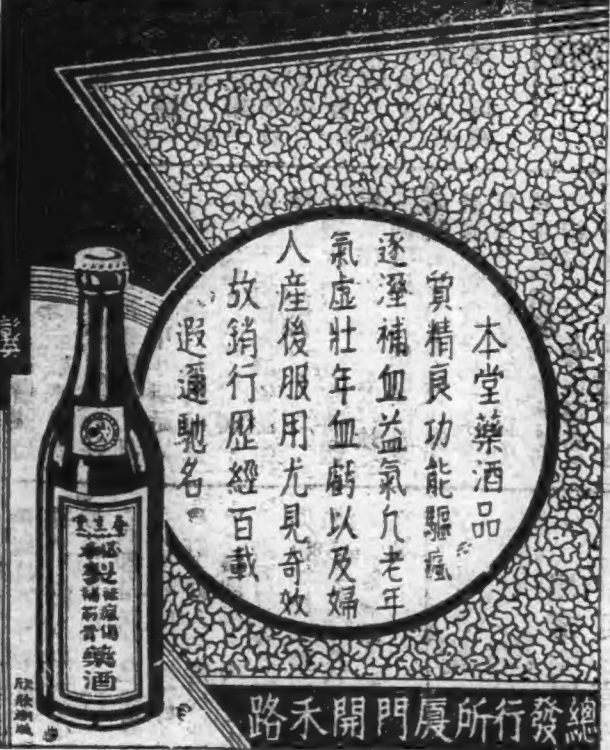 本堂藥酒品
質精良功能驅瘋
逐溼補血益氣凢老年
氣虛壯年血虧以及婦
人產後服用尤見奇效
故銷行歷經百載
遐邇馳名
春生堂
製
祛瘋傷
補筋骨
藥酒
總發行所廈門開禾路